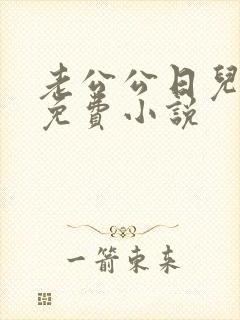 老公公日兒
免費小說
一箭東来